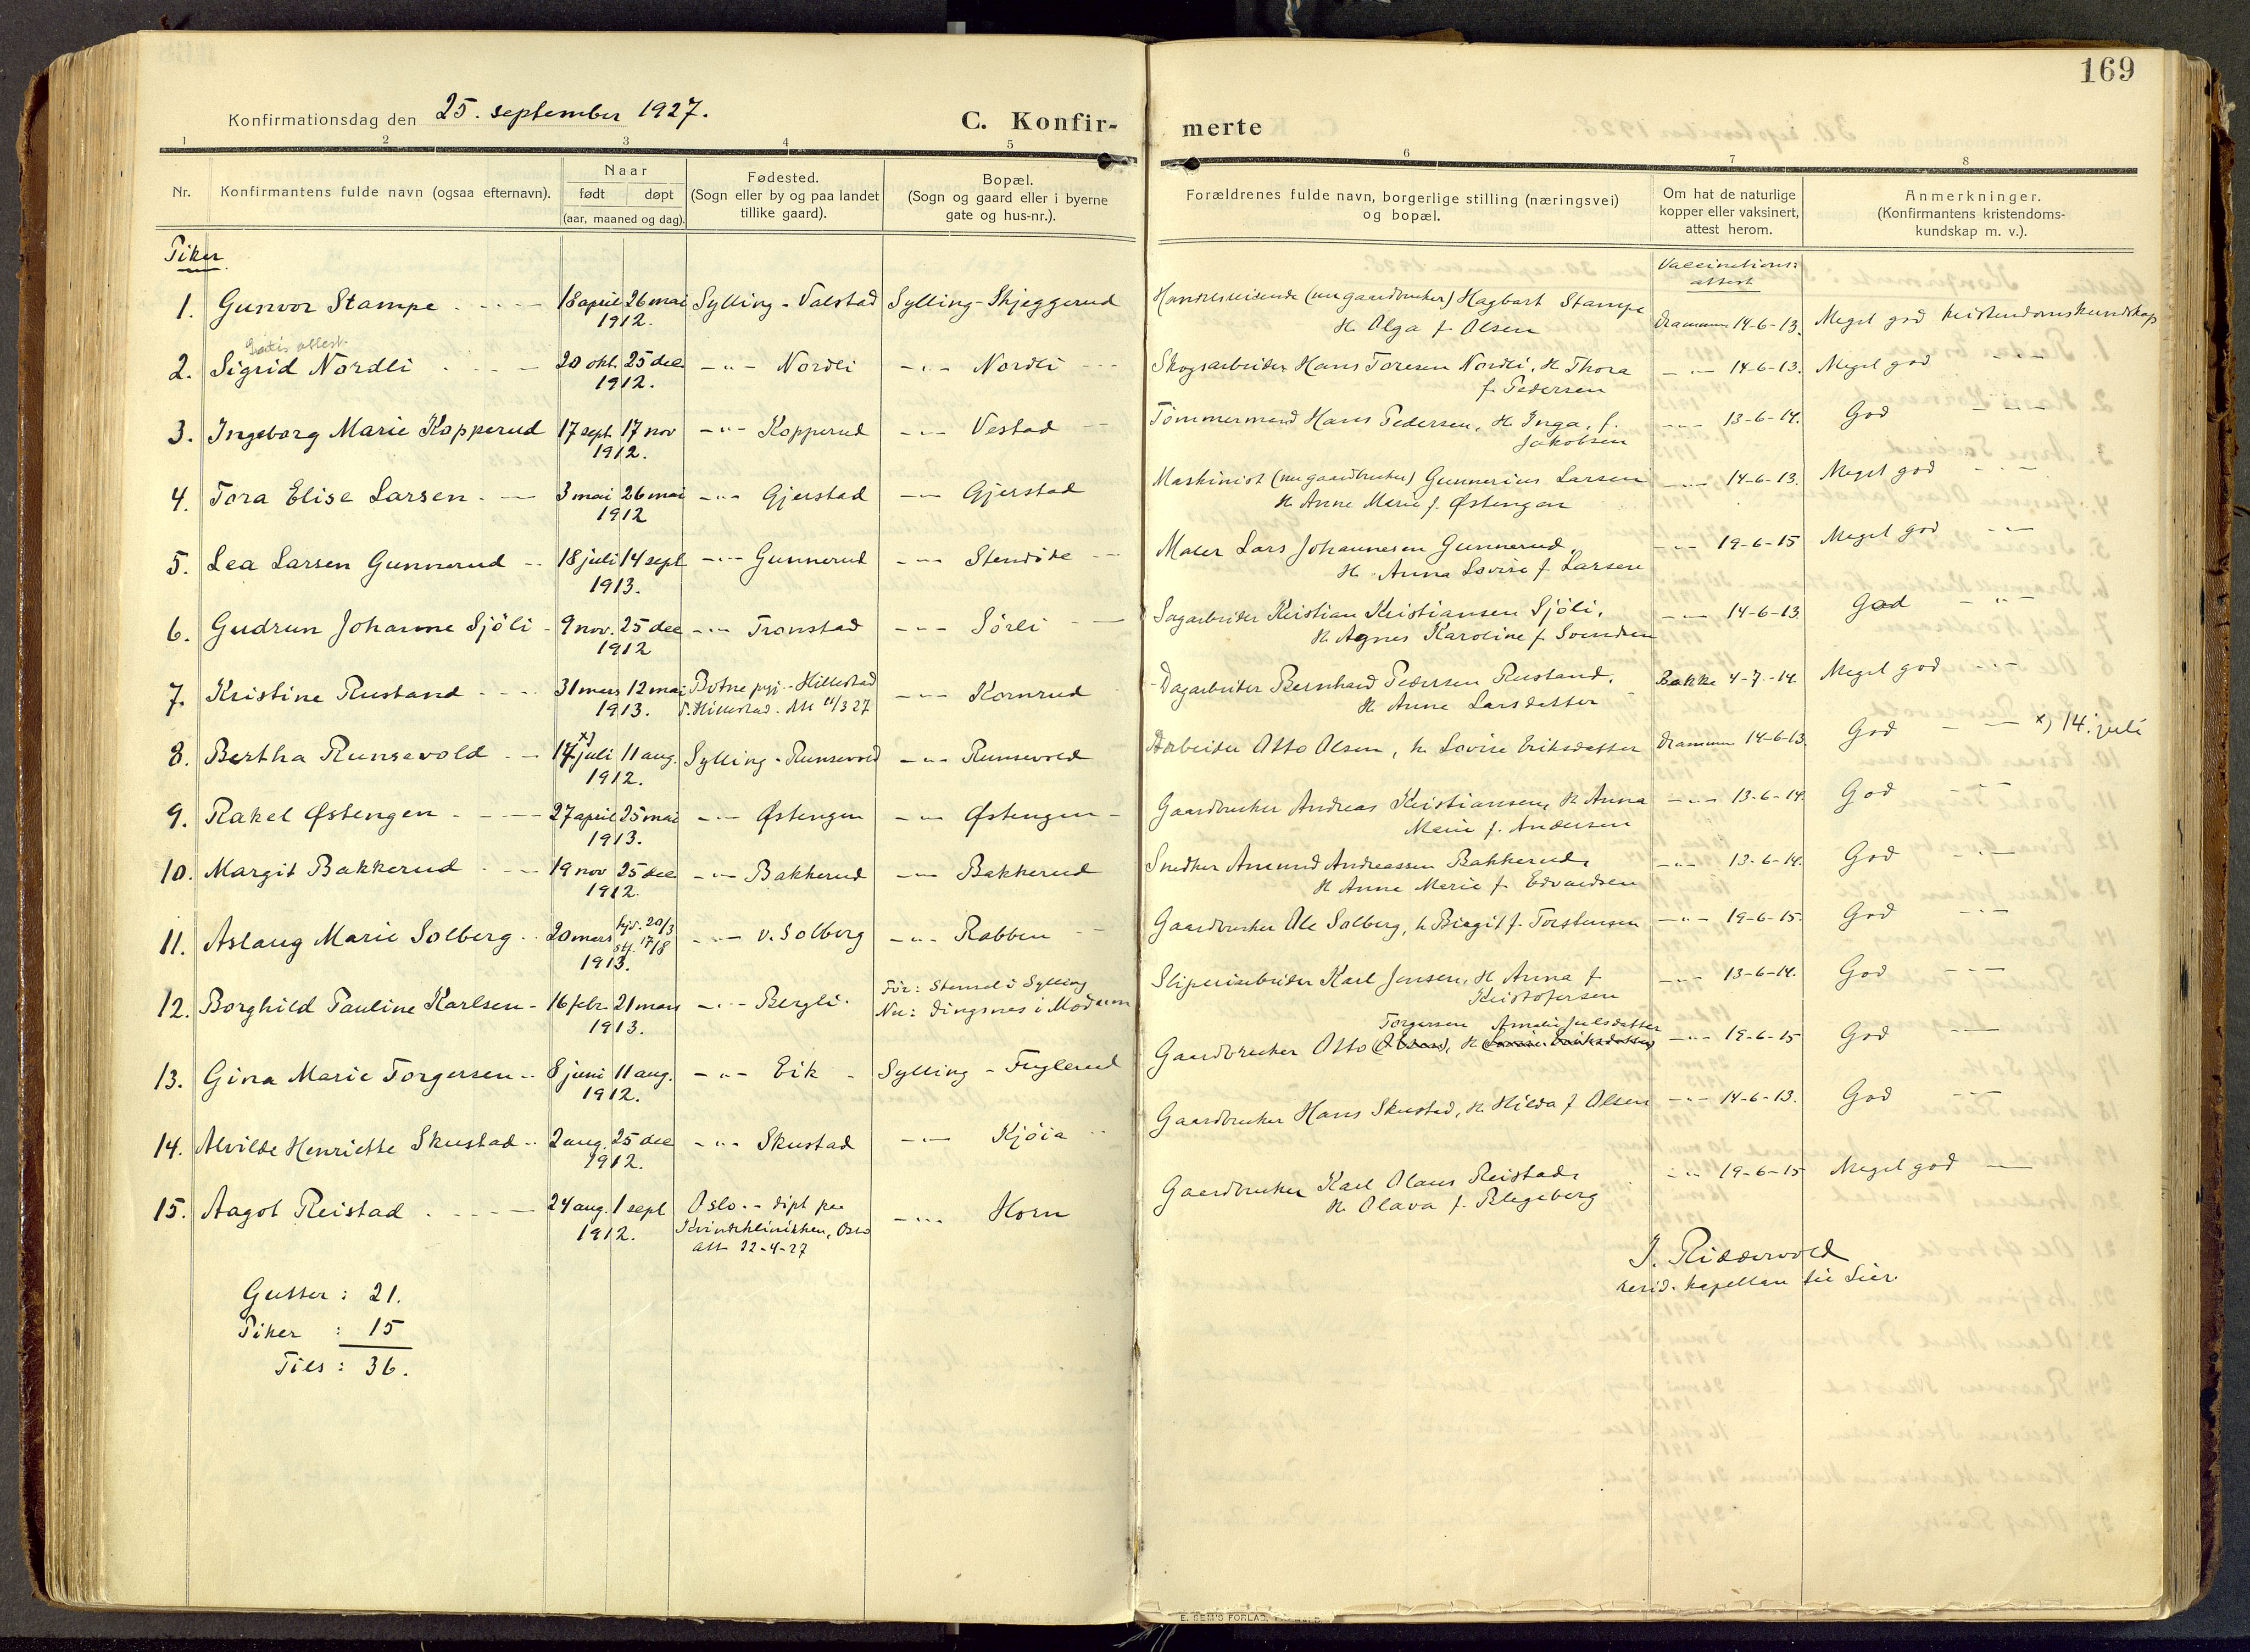 169
Konfirmationsdag den 25. september 1927.
C. Konfir- merte
1 2 3 4 5 6 7 8
Nr.
Konfirmantens fulde navn (ogsaa efternavn).
Naar
født døpt
(aar, maaned og dag).
Fødested.
(Sogn eller by og paa landet
tillike gaard).
Bopæl.
(Sogn og gaard eller i byerne
gate og hus-nr.).
Forældrenes fulde navn, borgerlige stilling (næringsvei)
og bopæl.
Om hat de naturlige
kopper eller vaksinert,
attest herom.
Anmerkninger.
(Konfirmantens kristendoms-
kundskap m. v.).
Piker
Vaccinations:
attest
1. Gunvor Stampe 18 april 26 mai Sylling - Valstad Sylling - Skjeggerud Handelsreisende (nu gaardbruker) Hagbart Stampe
1912. H. Olga f. Olsen Drammen 14-6-13. Meget god kristendomskundskap
Gratis attest.
2. Sigrid Nordli 20 okt. 25 dec -"- Nordli -"- Nordli Skogsarbeider Hans Toresen Nordli, H. Thora -"- 14-6-13. Meget god -"-
1912. f. Pedersen
3. Ingeborg Marie Kopperud 17 sept 17 nov -"- Kopperud -"- Vestad Tømmermand Hans Pedersen, H. Inga, f. -"- 13-6-14. God -"-
1912. Jakobsen
4. Tora Elise Larsen 3 mai 26 mai -"- Gjerstad -"- Gjerstad Maskinist (nu gaardbruker) Gunnerius Larsen -"- 14-6-13. Meget god -"-
1912 H. Anne Marie f. Østengen
5. Lea Larsen Gunnerud 18 juli 14 sept -"- Gunnerud -"- Stendøke Maler Lars Johannesen Gunnerud, -"- 19-6-15 Meget god -"-
1913. H. Anna Lovise f. Larsen
6. Gudrun Johanne Sjöli 9 nov. 25 dec -"- Tronstad -"- Sörli Sagarbeider Kristian Kristiansen Sjöli, -"- 14-6-13 God -"-
1912 H. Agnes Karoline f. Svendsen
7. Kristine Rustand 31 mars 12 mai Botne pgj. - Hillestad -"- Kornrud Dagarbeider Bernhard Pedersen Rustand, Bakke 4-7-14. Meget god -"-
1913. s. Hillestad. Att 11/3 27 H. Anne Larsdatter
8. Bertha Runsevold 17 x) juli 11 aug. Sylling - Runsevold -"- Runsevold Arbeider Otto Olsen, h. Lovise Eriksdatter Drammen 14-6-13. God -"- x) 14. juli
1912.
9. Rakel Østengen 27 april 25 mai -"- Østengen -"- Østengen Gaardbruker Andreas Kristiansen, H. Anna -"- 13-6-14. God -"-
1913. Marie f. Andersen
10. Margit Bakkerud 19 nov 25 dec -"- Bakkerud -"- Bakkerud Snedker Amund Andreassen Bakkerud, -"- 13-6-14. God -"-
1912. H. Anne Marie f. Edvardsen
11. Aslaug Marie Solberg 20 mars hjd. 20/3 stf. 17/8 -"- v. Solberg -"- Rabben Gaardbruker Ole Solberg, h. Birgit f. Torstensen -"- 19-6-15. God -"-
1913.
12. Borghild Pauline Karlsen 16 febr. 21 mars -"- Bergli Før: Stensel i Sylling Sliperiarbeider Karl Jensen, H. Anna f. -"- 13-6-14. God -"-
1913. Nu: Dingsnes i Modum Kristofersen
Torgersen Amalie Julsdatter
13. Gina Marie Torgersen 8 juni 11 aug. -"- Eik Sylling - Fuglerud Gaardbruker Otto (Olsen), H. (Lovise Eriksdatter) -"- 19-6-15 God -"-
1912.
14. Alvilde Henriette Skustad 2 aug. 25 dec -"- Skustad -"- Kjöia Gaardbruker Hans Skustad, H. Hilda f. Olsen -"- 14-6-13. God -"-
1912.
15. Aagot Reistad 24 aug. 1 sept Oslo. - døpt paa -"- Horn Gaardbruker Karl Olaus Reistad, -"- 19-6-15 Meget god -"-
1912. Kvindeklinikken, Oslo H. Olava f. Blegeberg
Att. 22-4-27
J. Ridderwold
resid. kapellan til Lier.
Gutter: 21.
Piker: 15
Tils: 36.
E. SEM'S FORLAG,